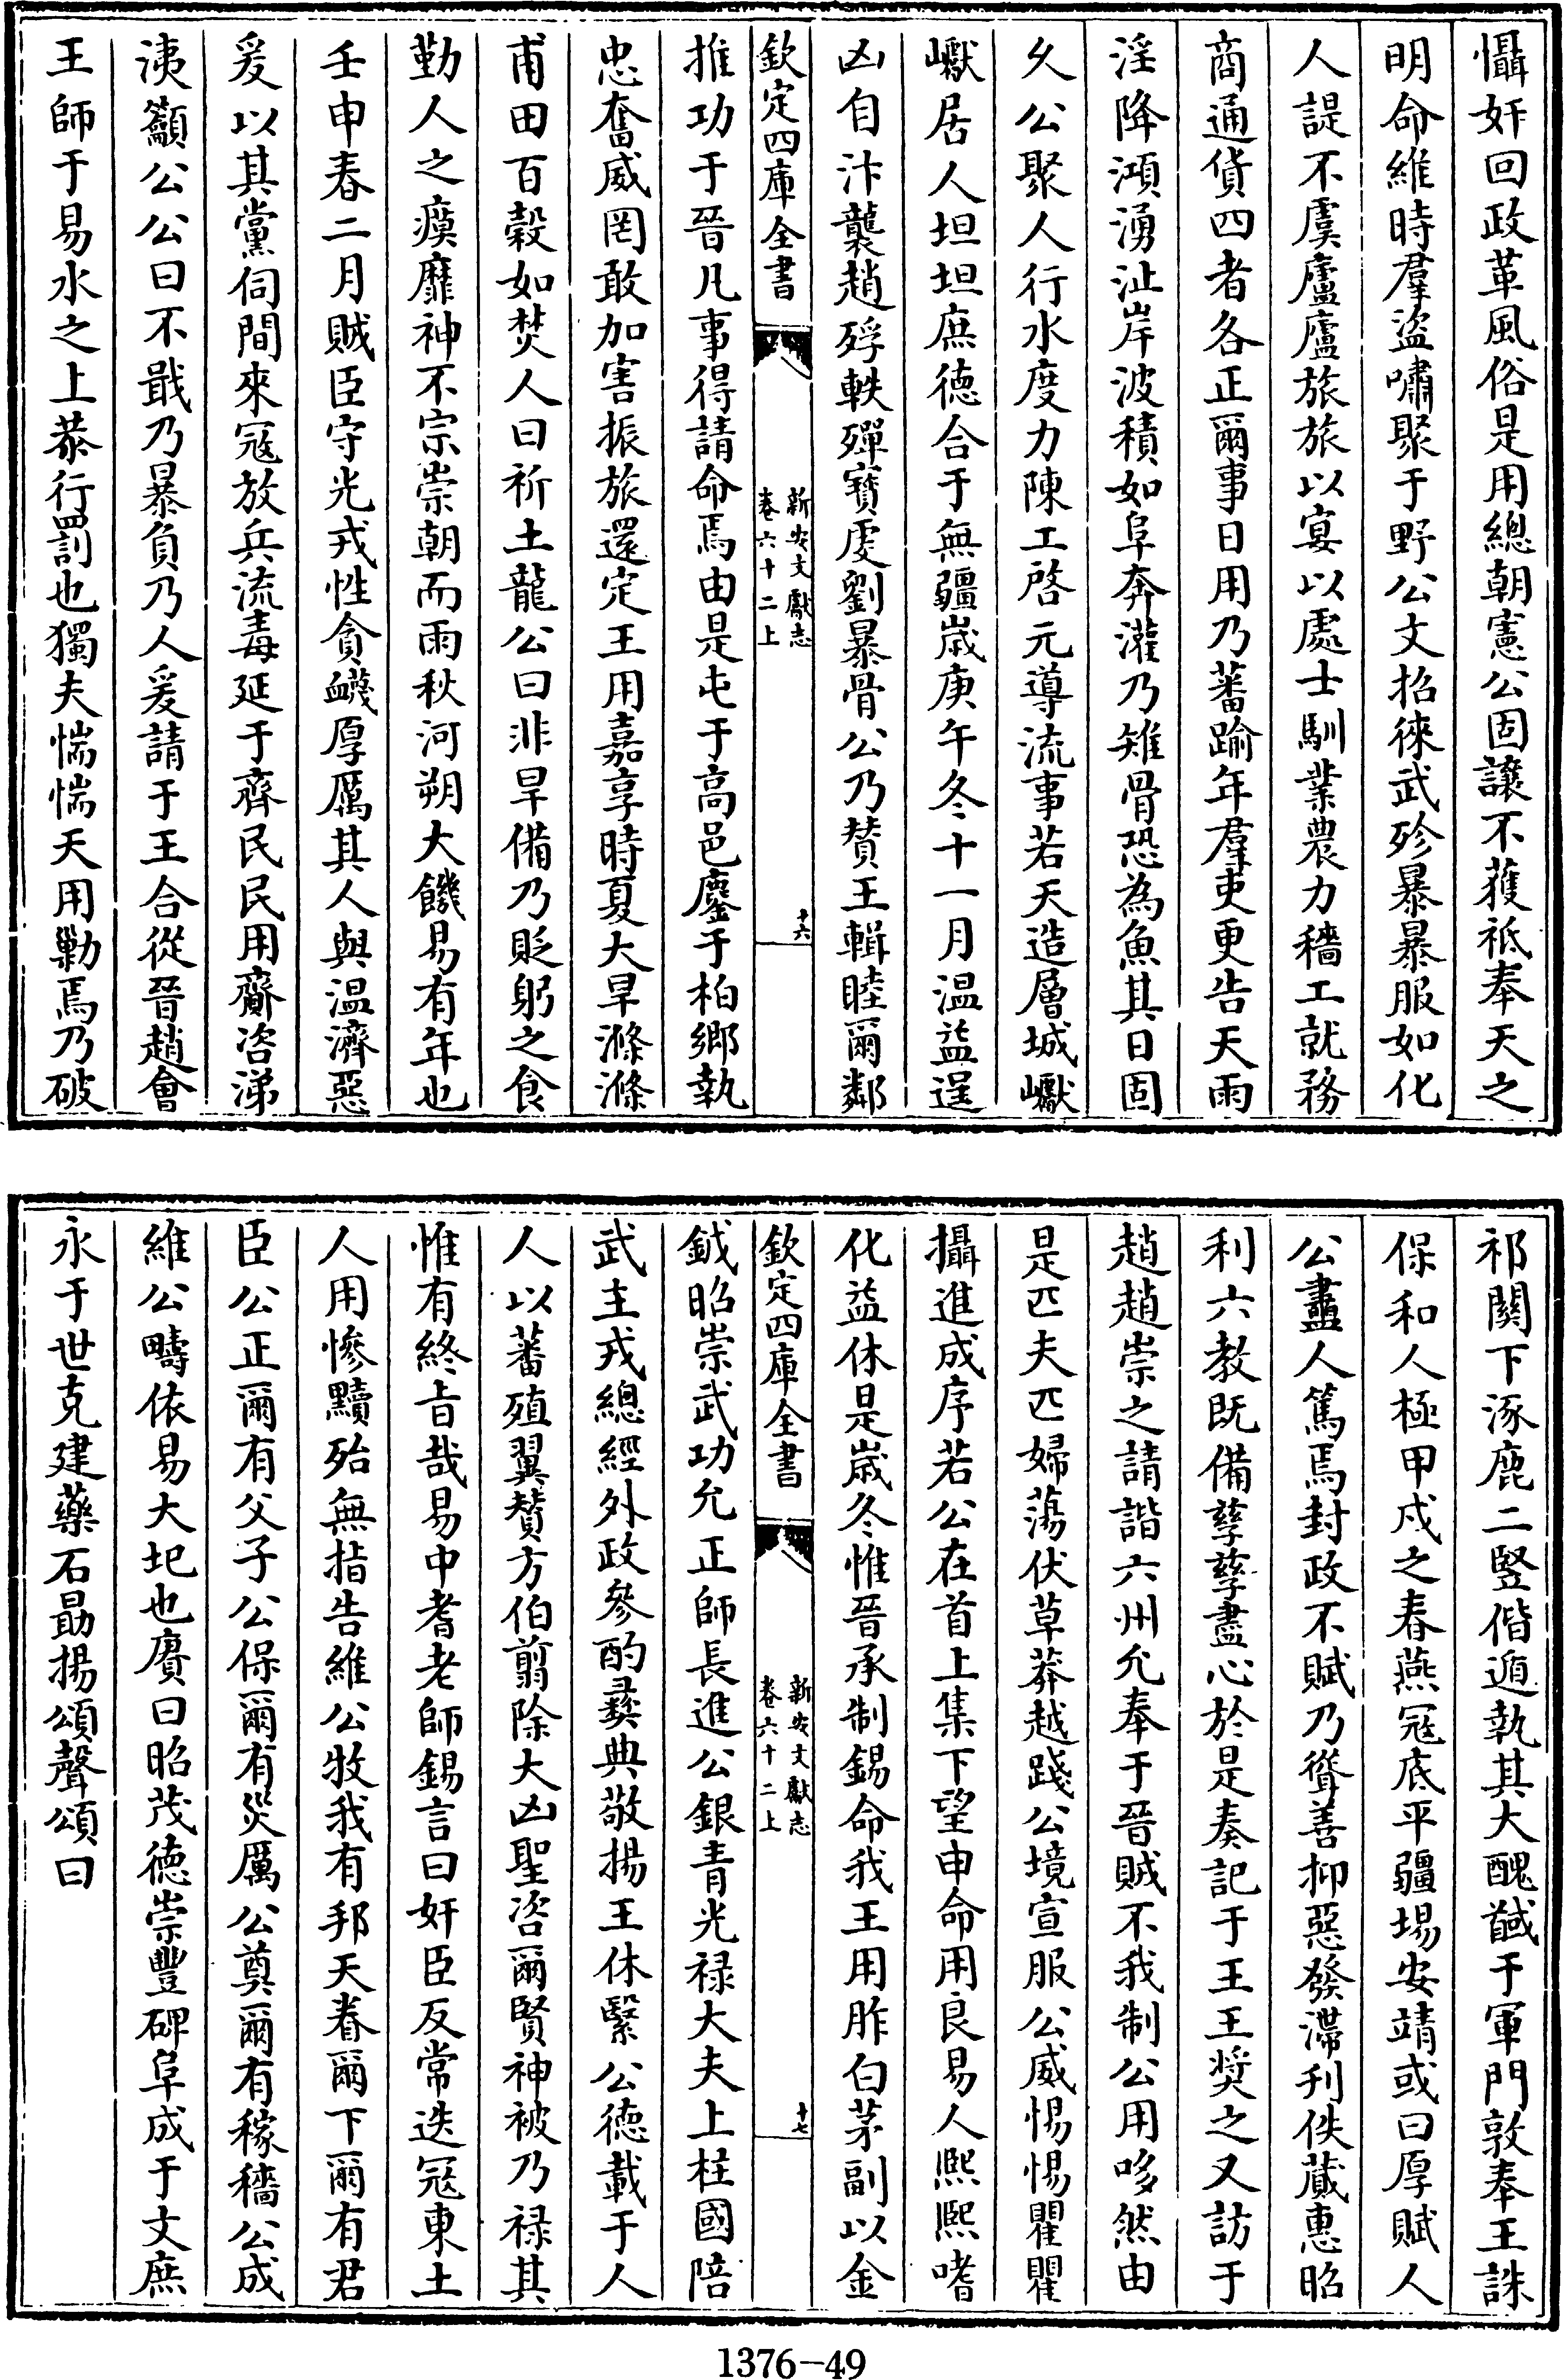 懾奸回政革風俗是用總朝憲公固讓不獲祗奉天之
明命維時羣盜嘯聚于野公文招徠武殄暴暴服如化
人諟不虞廬廬旅旅以宴以處士馴業農力穡工就務
商通貨四者各正爾事日用乃蕃踰年羣吏更告天雨
淫降澒湧沚岸波積如阜奔灌乃雉骨恐為魚其日固
久公聚人行水度力陳工啓元導流事若天造層城巘
巘居人坦坦庶德合于無疆歲庚午冬十一月温益逞
凶自汴襲趙殍軼殫寶虔劉暴骨公乃贊王輯睦爾鄰
欽定四庫全書
新安文獻志
卷六十二上
十六
推功于晉凡事得請命焉由是屯于高邑鏖于柏鄉執
忠奮威罔敢加害振旅還定王用嘉享時夏大旱滌滌
甫田百穀如焚人曰祈土龍公曰非旱備乃貶躬之食
勤人之瘼靡神不宗崇朝而雨秋河朔大饑易有年也
壬申春二月賊臣守光戎性貪衊厚厲其人與温濟惡
爰以其黨伺間來冦放兵流毒延于齊民民用齎咨涕
洟籲公公曰不戢乃暴負乃人爰請于王合從晉趙會
王師于易水之上恭行罰也獨夫惴惴天用勦焉乃破
祁闗下涿鹿二豎偕遁執其大醜馘于軍門敦奉王誅
保和人極甲戍之春燕冦底平疆埸安靖或曰厚賦人
公盡人篤焉封政不賦乃聳善抑惡發滯刋佚蕆惠昭
利六教既備孳孳盡心於是奏記于王王奨之又訪于
趙趙崇之請諧六州允奉于晉賊不我制公用哆然由
是匹夫匹婦蕩伏草莽越踐公境宣服公威惕惕瞿瞿
攝進成序若公在首上集下望申命用良易人熙熙嗜
化益休是歲冬惟晉承制錫命我王用胙白茅副以金
欽定四庫全書
新安文獻志
卷六十二上
十七
鉞昭崇武功允正師長進公銀青光禄大夫上柱國陪
武主戎總經外政參酌彛典敬揚王休緊公德載于人
人以蕃殖翼贊方伯翦除大凶聖咨爾賢神被乃禄其
惟有終㫖哉易中耆老師錫言曰奸臣反常迭冦東土
人用慘黷殆無指告維公牧我有邦天眷爾下爾有君
臣公正爾有父子公保爾有災厲公奠爾有稼穡公成
維公疇依易大圯也賡曰昭茂德崇豐碑阜成于文庶
永于世克建藥石勖揚頌聲頌曰
1376-49